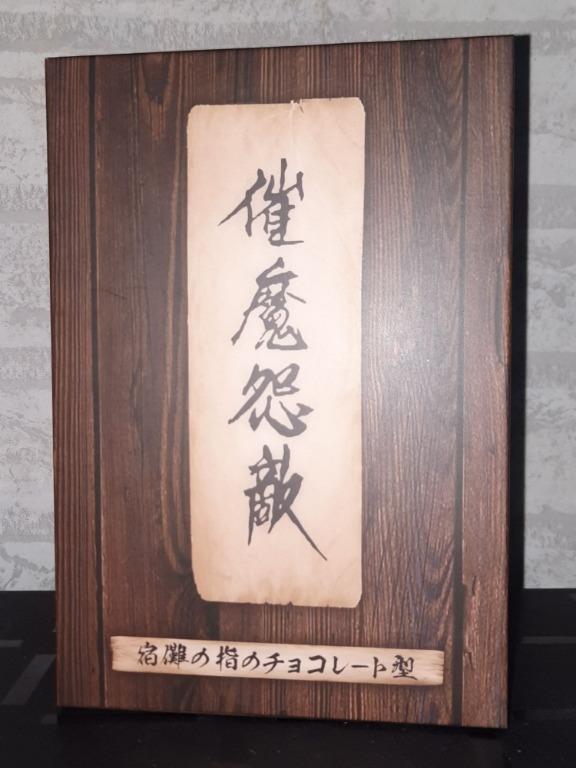 催魔怨敵
宿儺の指のチョコレート型